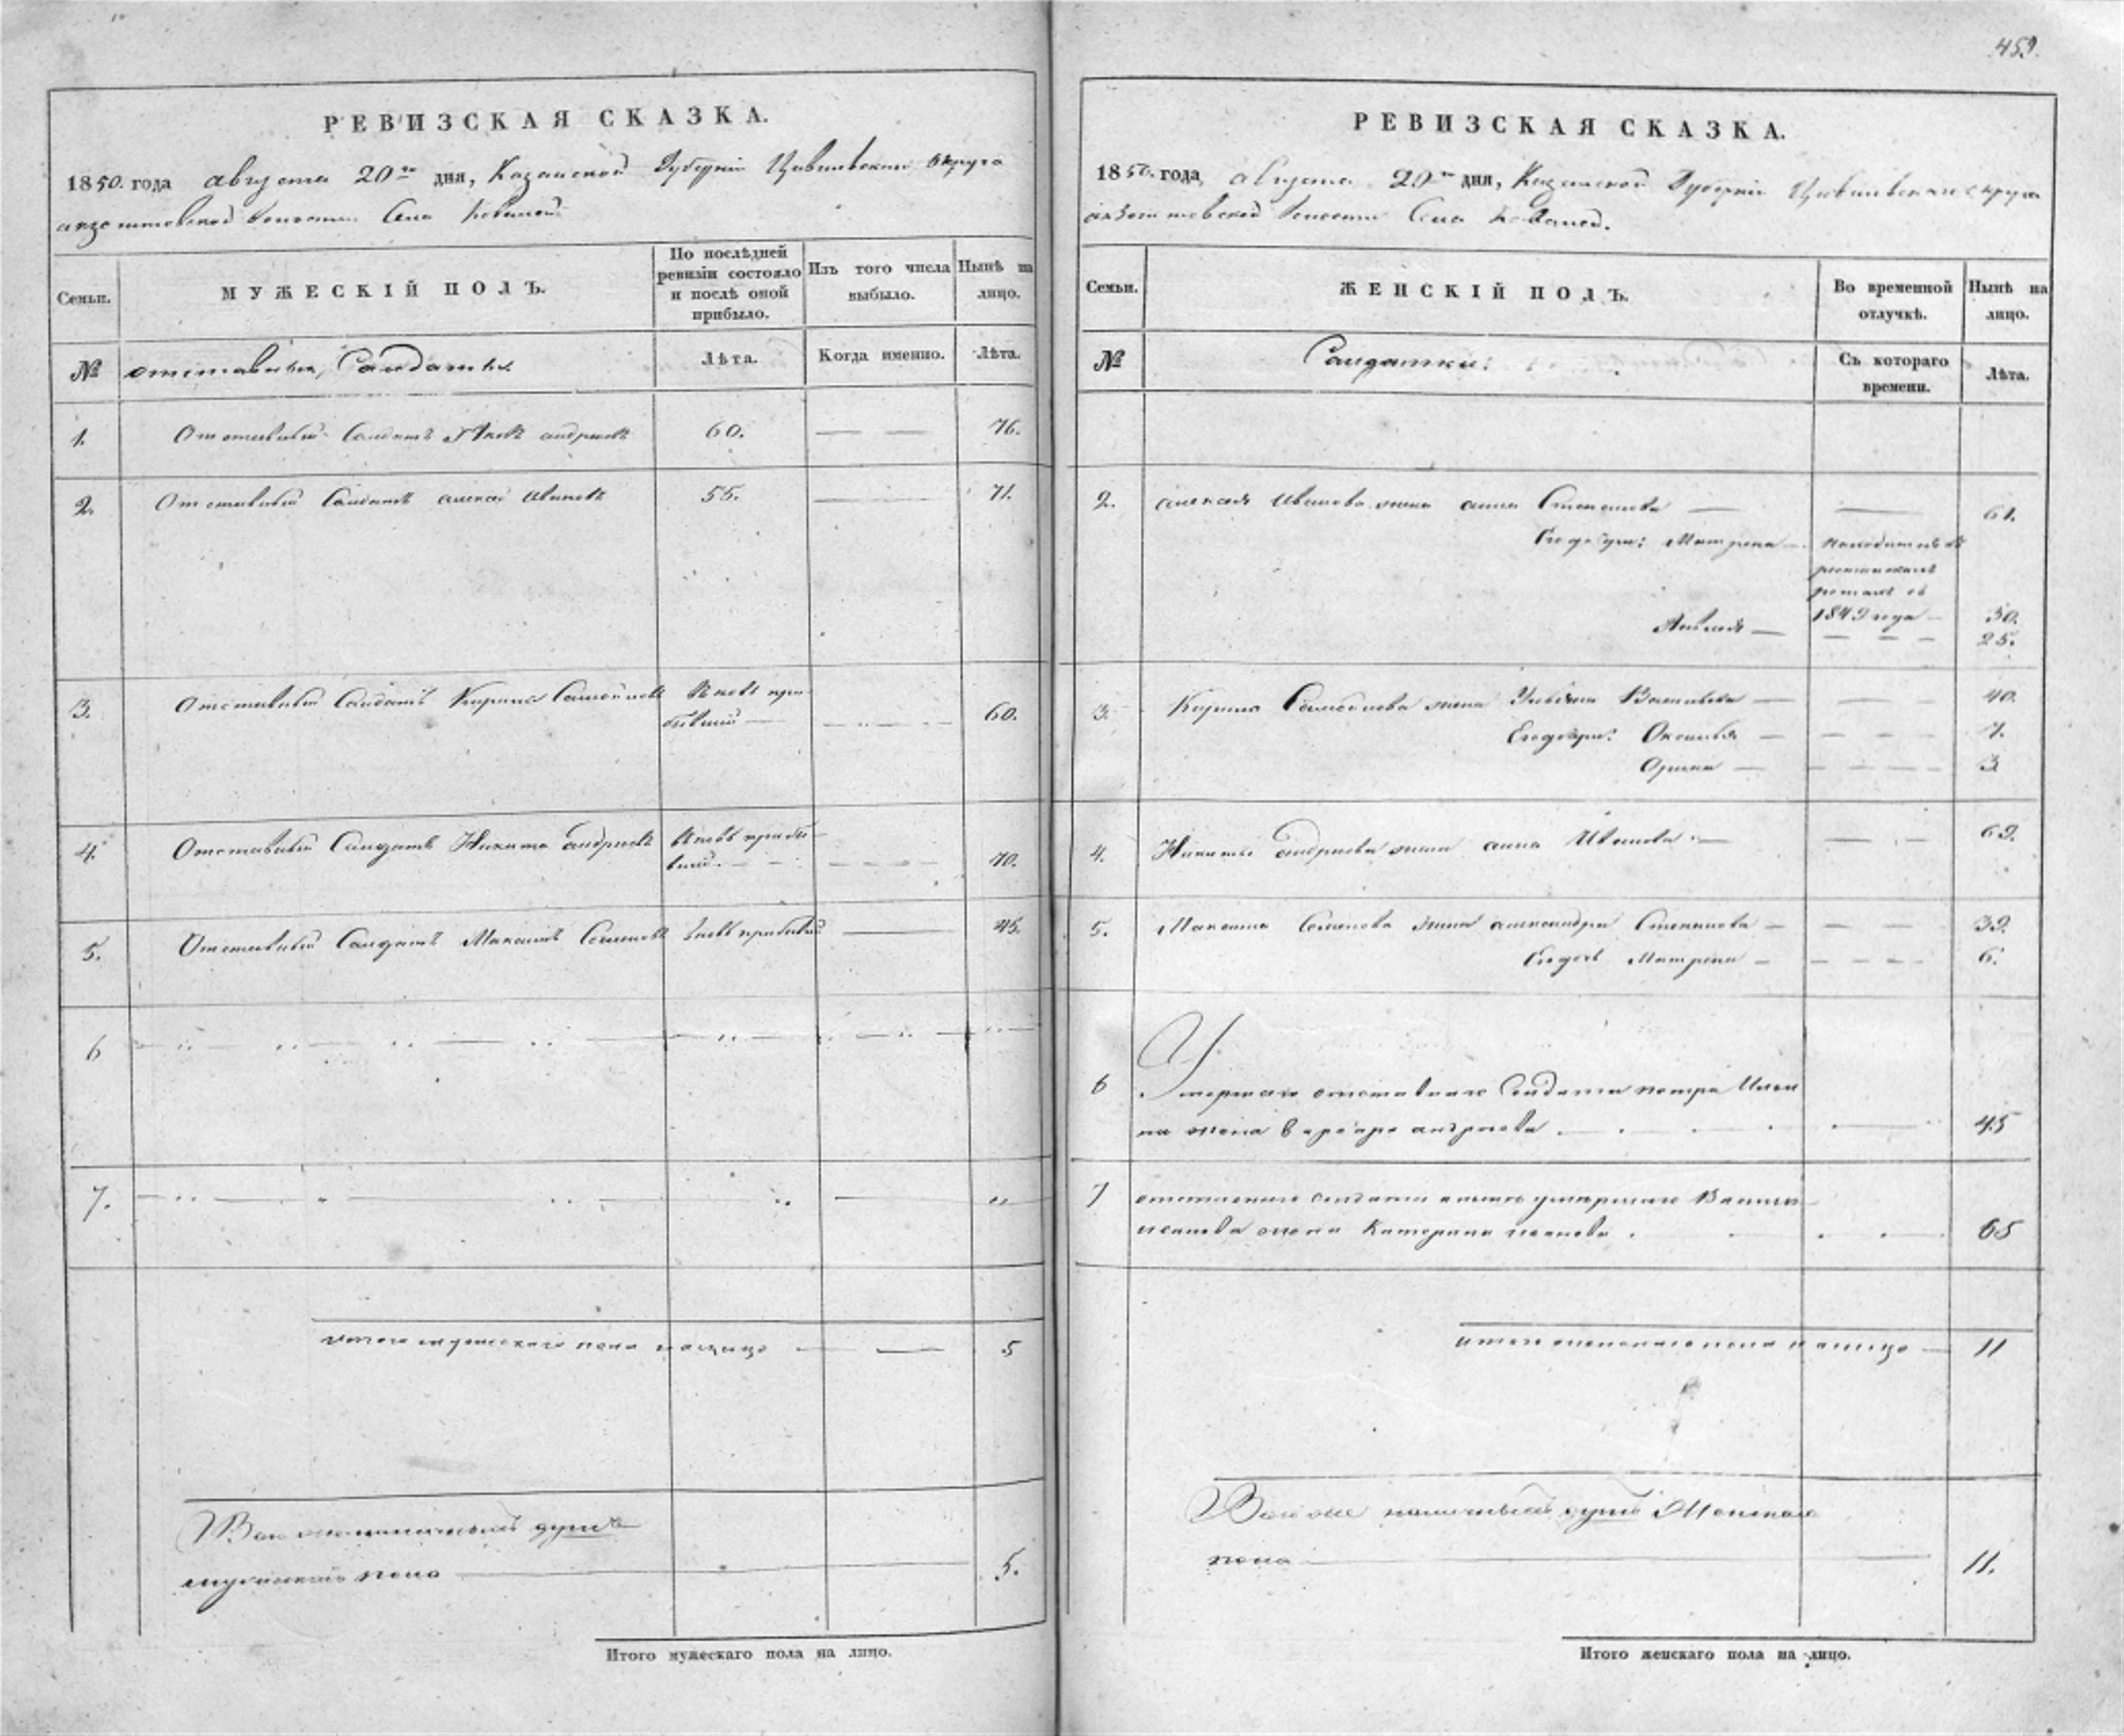 459.
РЕВИЗСКАЯ СКАЗКА.
1850. года августа 20го дня, Казанской Губерніи Цивильскаго округа
волости Села
Семьи.
МУЖЕСКІЙ ПОЛЪ.
По послѣдней ревизіи состояло и послѣ оной прибыло.
Изъ того числа выбыло.
Нынѣ на лицо.
№ отставныя, Салдаты
Лѣта.
Когда именно.
Лѣта.
1. Отставный Салдатъ Яковъ андреевъ 60. — — 76.
2. Отставный Салдатъ алексей ивановъ 55. — 71.
3. Отставный Салдатъ Кирила Самойловъ Вновь при-
бывший — 60.
4. Отставный Салдатъ Никита андреевъ Вновь прибы-
вший. — 70.
5. Отставный Салдатъ Максимъ Семеновъ вновь прибывший — 45.
6
7.
итого мужескаго пола налицо — 5
Всего наличныхъ душъ
мужеска пола 5.
Итого мужескаго пола на лицо.
РЕВИЗСКАЯ СКАЗКА.
1850. года, августа 20го дня, Казанской Губерніи Цивильскаго округа
волости Села
Семьи.
ЖЕНСКІЙ ПОЛЪ.
Во временной отлучкѣ.
Нынѣ на лицо.
№ Салдатки:
Съ котораго времени.
Лѣта.
2. алексея Иванова жена анна Степанова — — 61.
Его дочери: Матрена — находится въ
1849 года — 30.
— 25.
3. Кирила Самойлова жена Ульяна Васильева — — 40.
Его дочери: Оксинья — 7.
Орина — 3
4. Никиты андреева жена анна Иванова — 69.
5. Максима Семенова жена александра Степанова — 39.
Его дочь Матрена — 6.
6 Умершаго отставнаго Солдата петра Ильи
на жена варвара андреева 45
7 отставнаго солдата умершаго Василья
иванова жена Катерина иванова 65
итого женскаго пола налицо — 11
наличныхъ душъ Женскаго
пола 11.
Итого женскаго пола на лицо.